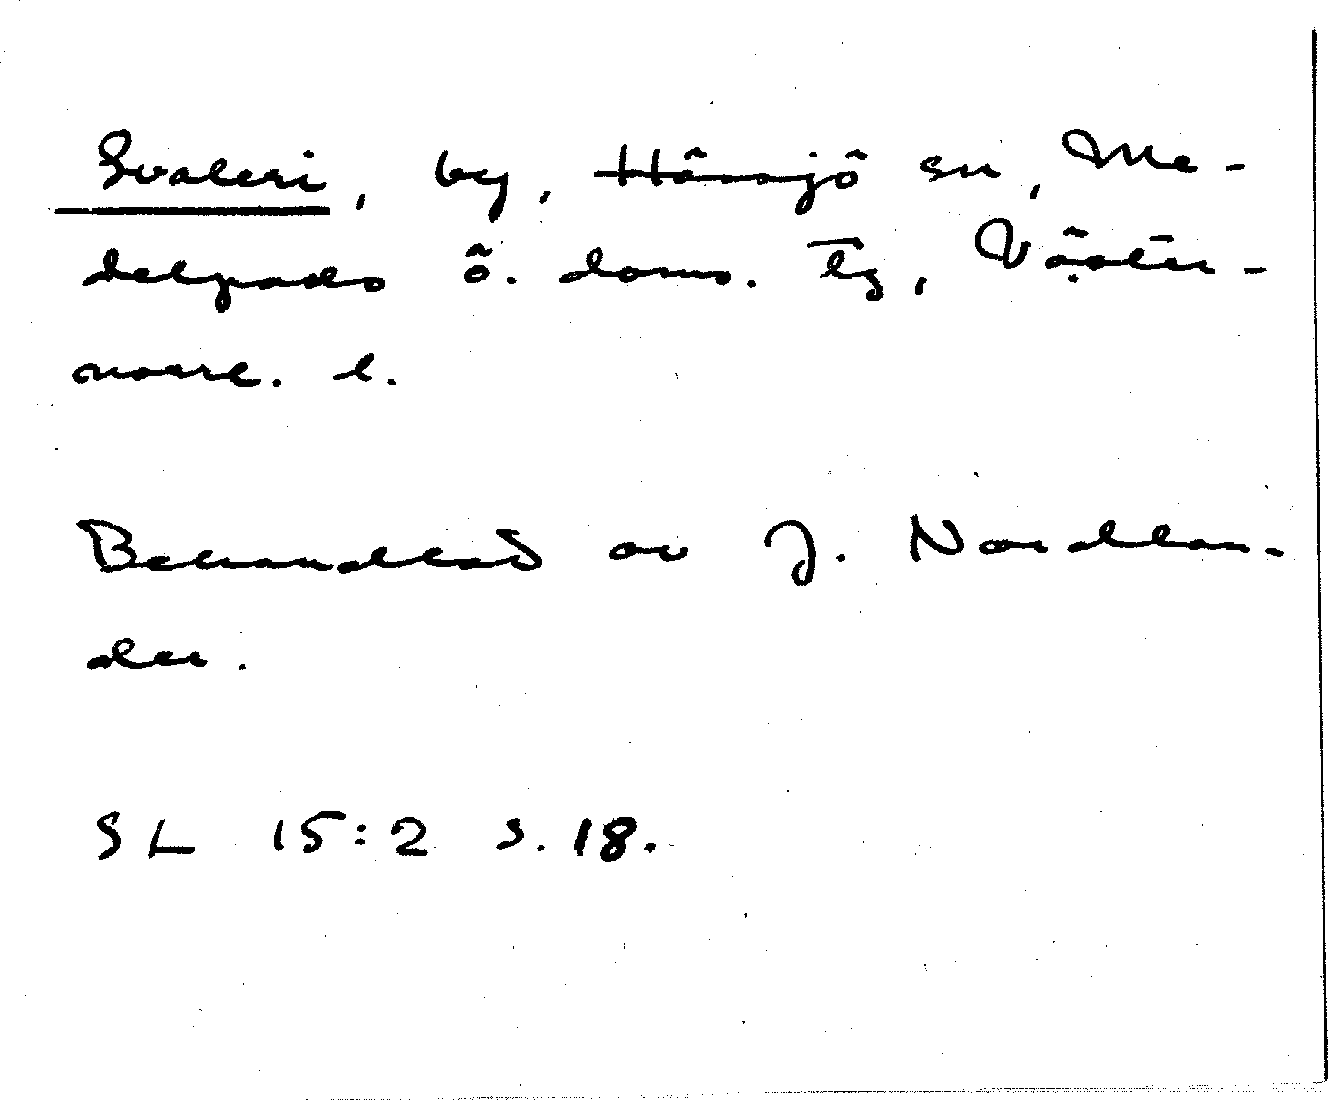 Svaleri, by, Hässjö sn, Me-
delpads ö. doms. tg, Väster-
norrl. l.
Behandlad av J. Nordlan-
der.
SL 15:2 s. 18.